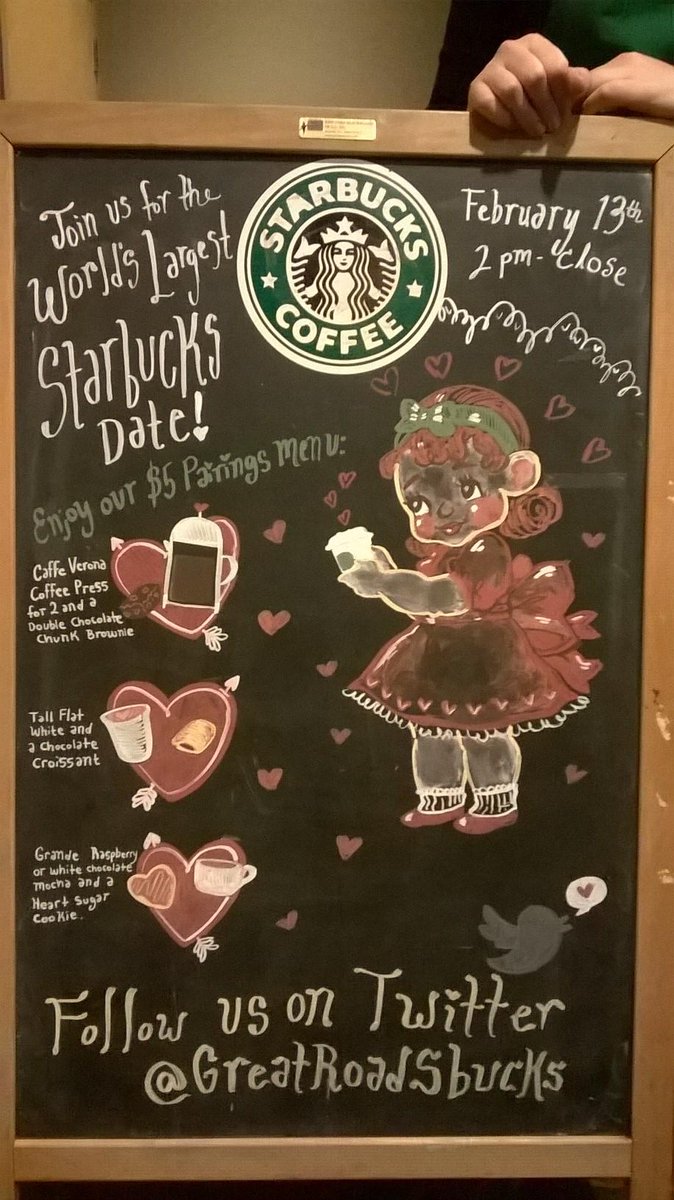 Join us for the
World's Largest
Starbucks
Date!
STARBUCKS
COFFEE
February 13th
2 pm - Close
Enjoy our $5 Pairings Menu:
Caffe Verona
Coffee Press
for 2 and a
Double Chocolate
Chunk Brownie
Tall Flat
White and
a Chocolate
Croissant
Grande Raspberry
or white chocolate
mocha and a
Heart Sugar
Cookie.
Follow us on Twitter
@GreatRoadSbucks